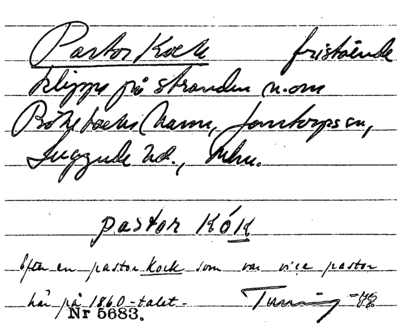 Pastor Kock fristående
klippa på stranden n.om
hamn, Jonstorps sn,
Luggude hd., Mhn.
pastor Kók
Efter en pastor Kock som var vice pastor
här på 1860-talet. Tuning -48
Nr 5683.